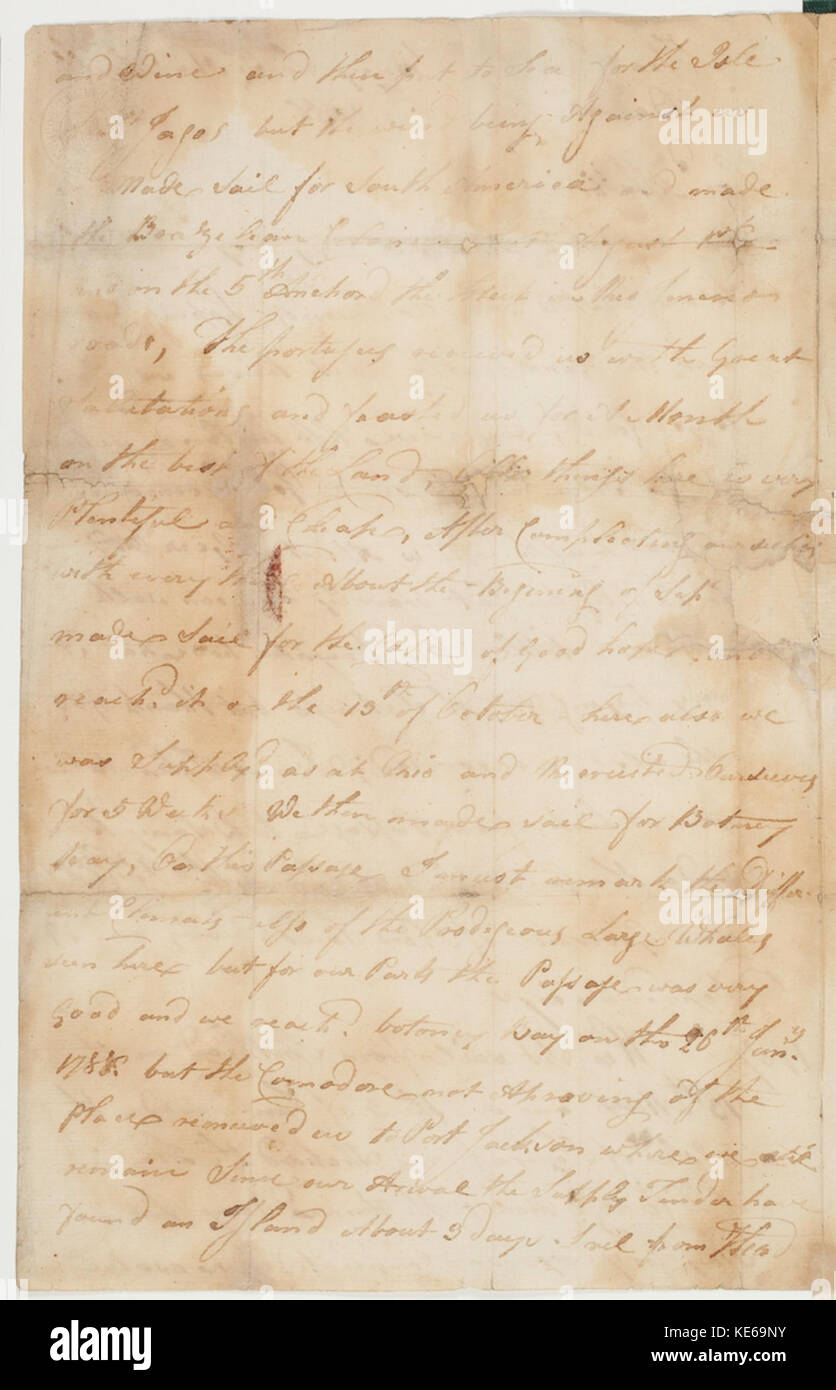 and Wine and then put to Sea for the Isle
Jagos but the wind being Against us
Made Sail for South America and made
the August
on the 5th Anchor'd the in
roads, The portugues received us with Great
Salutations and feasted us for A Month
on the best of the Land, things here is very
Plentiful and Cheap, After Compleating
with every About the Begining of Sepr
made Sail for the Cape of Good hope and
reach'd it on the 13th of October here also we
was Supply'd as at Rio and Recruited Ourselves
for 5 Weeks We then made sail for Botney
Bay, On this Passage I must remark the Differ-
ent Climats also of the Prodigeous Large Whales
seen here but for our Parts the Passage was very
Good and we reach'd botoney bay on the 20th Jany
1788. but the Comodore not Aproving of the
Place removed us to Port Jackson where we
remain Since our Arival the Supply Tender have
found an Island About 3 days Sail from
alamy
Image ID: KE69NY
www.alamy.com